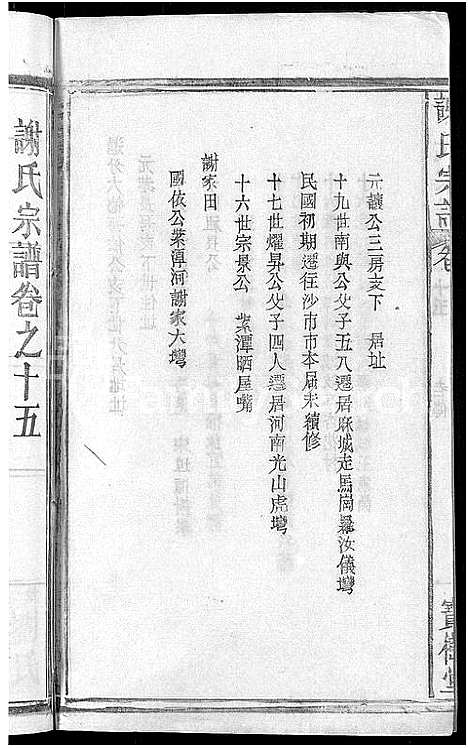 謝氏宗譜卷
寶樹堂
元讓公三房支下　居址
十九世南與公父子五八遷居麻城走馬崗羅汝儀灣
民國初期遷往沙市市本届未續修
十七世燿昇公父子四人遷居河南光山虎灣
十六世宗景公　紫潭晒屋嘴
謝家田
國依公紫潭河謝家大灣
謝氏宗譜卷之十五